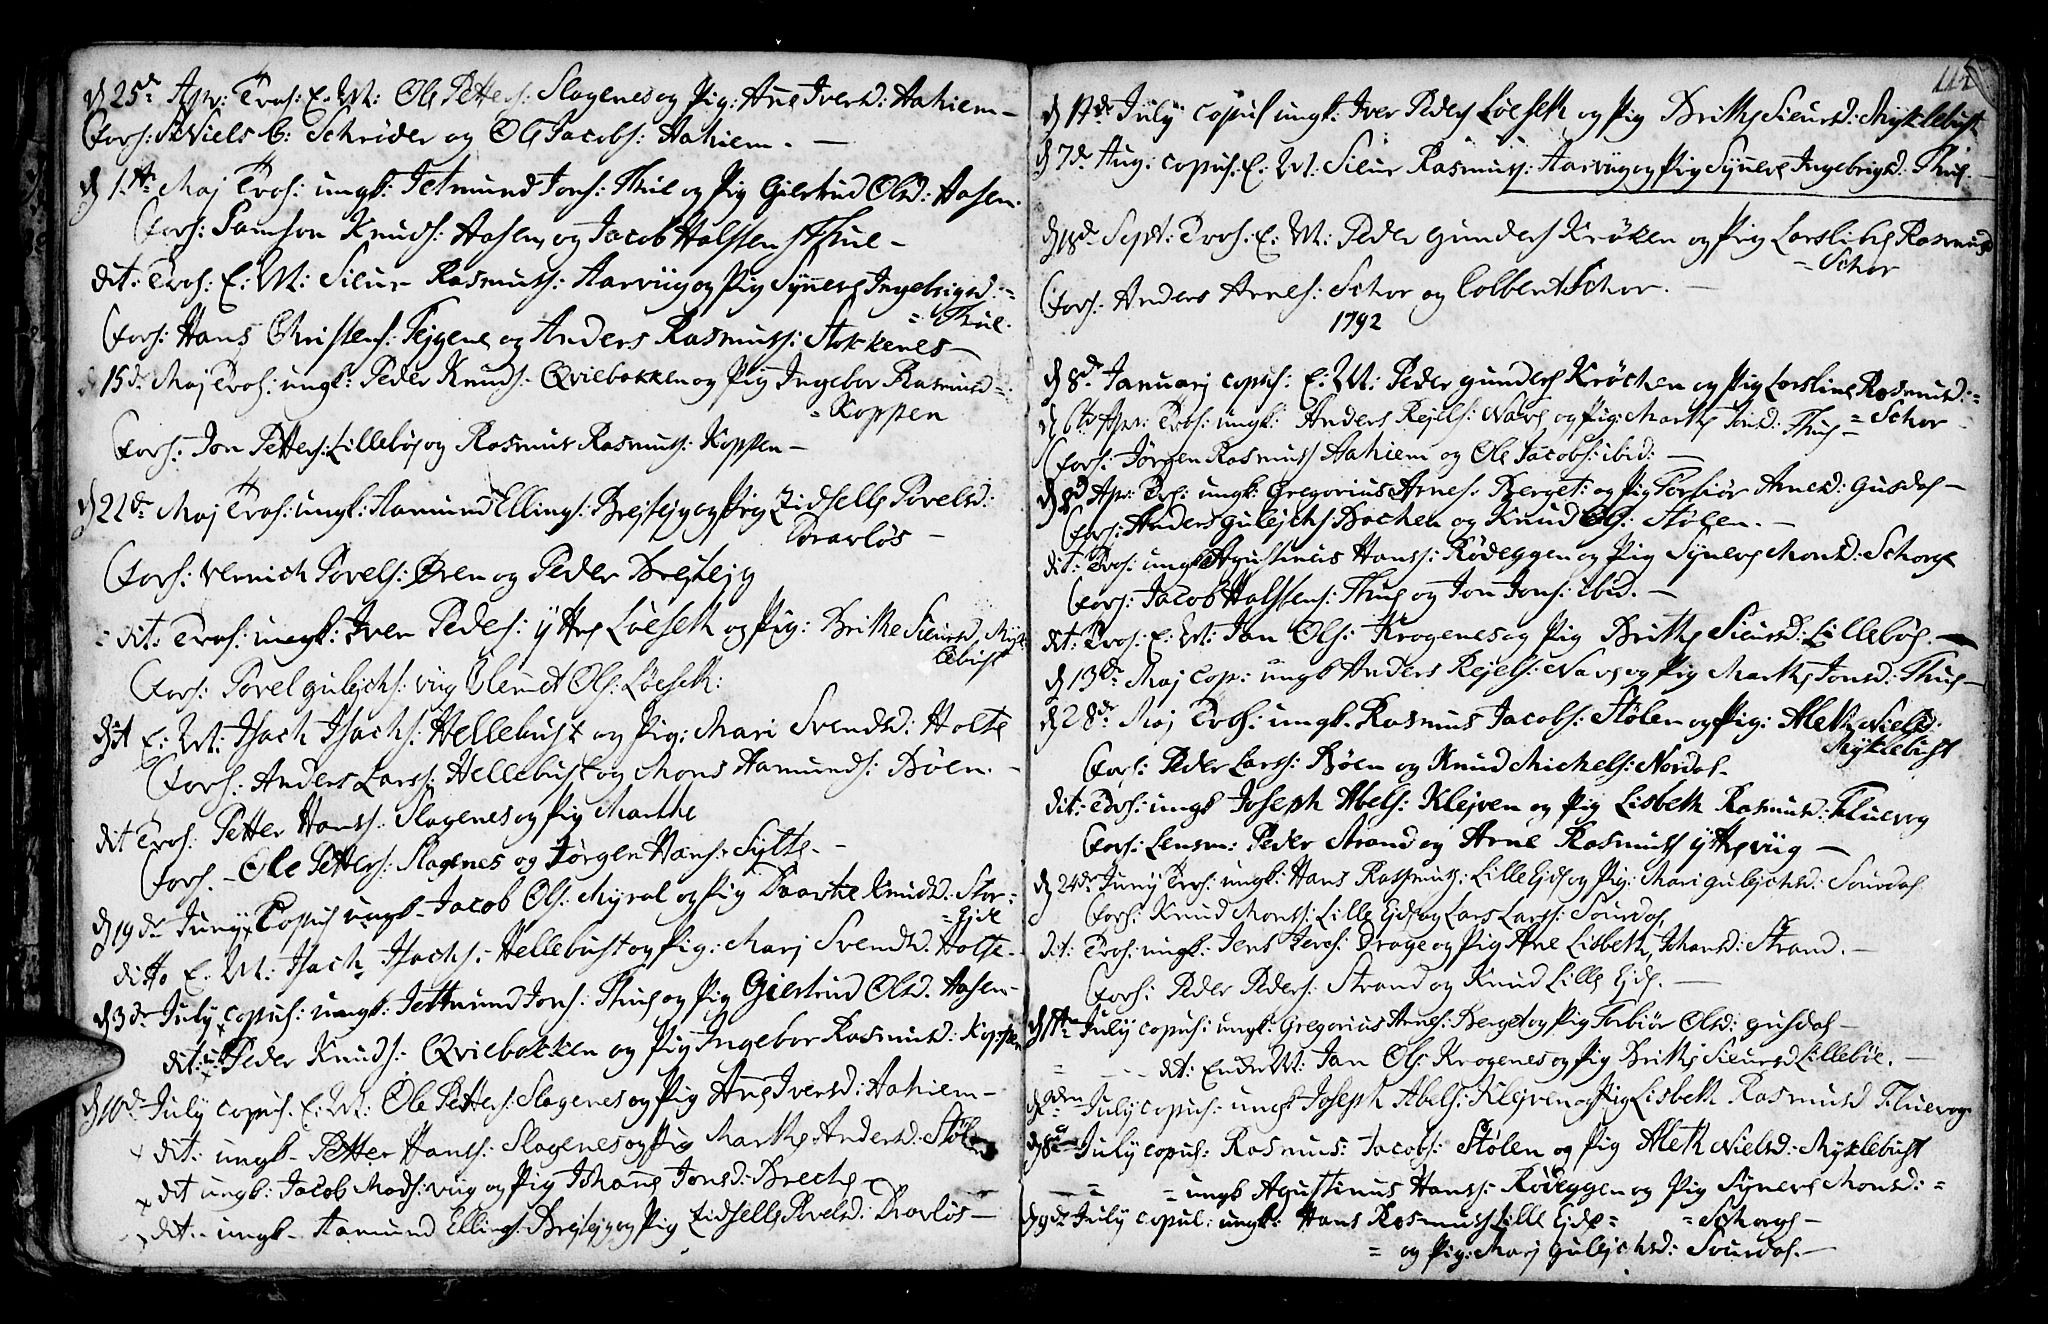 d 25de Apr: Trol: E: M: Ole Petters: Slagenes og Pig: Ane Iversd: Aahiem –
Forl: Niels C: Schrøder og Ole Jacobs: Aahiem. –
d 1ste Maj Trol: ungk: Jetmund Jons: Thue og Pig Giertrud Olsd: Aasen.
Forl: Samson Knuds: Aasen, og Jacob Halsten: Thue –
dit: Trol: E: M: Siur Rasmuss: Aarviig og Pig Syneve Ingebrigsd: =
= Thue.
Forl: Hans Christens: Tejgene og Anders Rasmuss: Stokkenes –
d 15de Maj Trol: ungk: Peder Knuds: Qviebakken og Pig Ingebor Rasmusd =
= Koppen
Forl: Jon Petters: Lillebøe og Rasmus Rasmuss: Koppen –
d 22de Maj Trol: ungk: Aamund Ellings: Brejtejg og Pig Zidselle Povelsd:
Pravløs –
Forl: Vernich Povels: Øren og Peder Brejtejg
= dit: Trol: ungk: Iver Peders: Ytre Løeseth og Pig: Brithe Siursd. Myk-
lebust
Forl: Povel Gulejchs: Viig Clemet Ols: Løeseth:
dit E: M: Isach Isachs: Hellebust og Pig: Mari Svendsd: Holte
Forl: Anders Larss: Hellebust og Mons Aamunds: Bøen. –
dit Trol: Petter Hanss: Slagenes og Pig Marthe
Forl. – Ole Petters: Slagenes og Jørgen Hans: Sylte. –
d 19de Juny Copul ungk. Jacob Ols: Myral og Pig Baarte Knudsd: Stor=
= Ejde
ditto E: M: Isach Isachs: Hellebust og Pig: Marj Svendsd. Holte.
d 3de July copul: ungk: Jetmund Jons: Thue og Pig Giertrud Olsd. Aasen –
dit: Peder Knuds: Qviebakken og Pig Ingebor Rasmusd: Koppen
d 10de July copul. E: M: Ole Petters: Slagenes og Pig Ane Iversd: Aahiem –
dit: ungk – Petter Hanss: Slagenes og Pig Marthe Andersd: Støle
dit ungk: Jacob Mads: Viig og Pig Johane Jonsd: Breche –
dit: – ungk – Aamund Ellings: Brejtejg og Pig Zidselle Povelsd: Pravløs –
d 17de July copul ungk: Iver Peders Løeseth og Pig Brithe Siursd: Myklebust
d 7de Aug: copul: E: M: Siur Rasmuss: Aarviig og Pig Syneve Ingebrigsd: Thue. –
d 18de Sept: Trol: E: M: Peder Gunders Krøken og Pig Larsline Rasmusd
= Schor
Forl: Anders Arnes: Schor og Colbent Schor. –
1792
d 8de Januarj copul: E: M: Peder Gunders Krøchen og Pig Larsline Rasmusd: =
= Schor –
d 6te Apr: Trol: ungk: Anders Rejels: Nave og Pig: Marthe Jonsd: Thue
Forl: Jørgen Rasmuss Aahiem og Ole Jacobs: ibid: –
d 8de Apr: Trol: ungk: Gregorius Arnes: Berget: og Pig Torbiør Arnesd: Gusdal –
Forl: Anders Gulejchs Bachen og Knud Ols: Stølen. –
dit: Trol: ungk: Agustinus Hanss: Rødeggen og Pig Syneve Monsd: Schorge
Forl: Jacob Halstens: Thue og Jon Jons: ibid. –
dit: Trol: E: M: Jan Ols: Krogenes og Pig Brithe Siursd: Lillebøe. –
d 13de Maj cop: ungk Anders Rejels: Nave og Pig Marthe Jonsd: Thue –
d 28de Maj Trol: ungk. Rasmus Jacobs: Stølen og Pig: Aleth Nielsd:
Myklebust
Forl: Peder Larss: Bøen og Knud Michels: Nordal –
dit: Trol: ungk Joseph Abels: Klejven og Pig Lisbeth Rasmusd: Fluevog
Forl: Lensm: Peder Strand og Arne Rasmuss Ytreviig –
d 24de Juny Trol: ungk: Hans Rasmuss: Lille Ejde og Pig: Mari Gulejchsd: Sourdal
Forl: Knud Monss: Lille Ejde og Lars Larss: Sourdal
dit: Trol: ungk: Jens Iers: Drage og Pig Ane Lisbeth Johansd: Strand. –
Forl: Peder Peders: Strand og Knud Lille Ejde. –
d 1ste July copul: ungk: Gregorius Arnes: Berget og Pig Torbiør Olsd: Gusdal –
= – – – dit: Enke M: Jan Ols: Krogenes og Pig Brithe Siursd Lillebøe. –
July copul: ungk Joseph Abels: Klejven og Pig Lisbeth Rasmusd Fluevog
d 8de July copul: Rasmus: Jacobs: Stølen og Pig Aleth Nielsd: Myklebust
– = = ungk Agustinus Hanss: Rødeggen og Pig Syneve Monsd: =
= Schorge –
d 9de July copul: ungk: Hans Rasmuss Lille Ejde =
= og Pig: Marj Gulejchsd: Sourdal. –